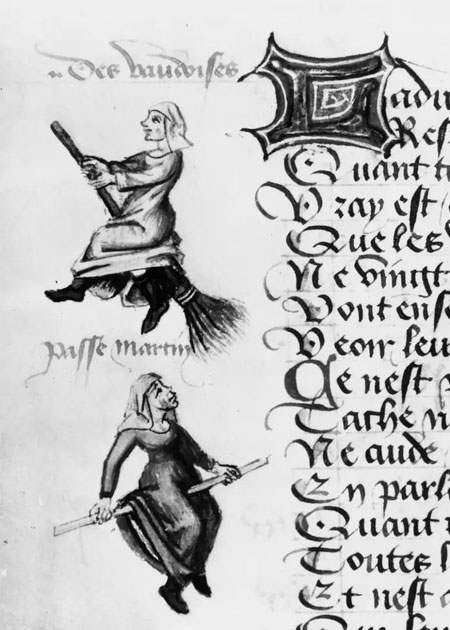 Des vaudoises
passe martin
Quant
Vray est
Que les
Ne vingt
Vont ense
Veoir leur
Ce nest
Tache
Ne aude
En parl
Quant
Toutes l
Et nest